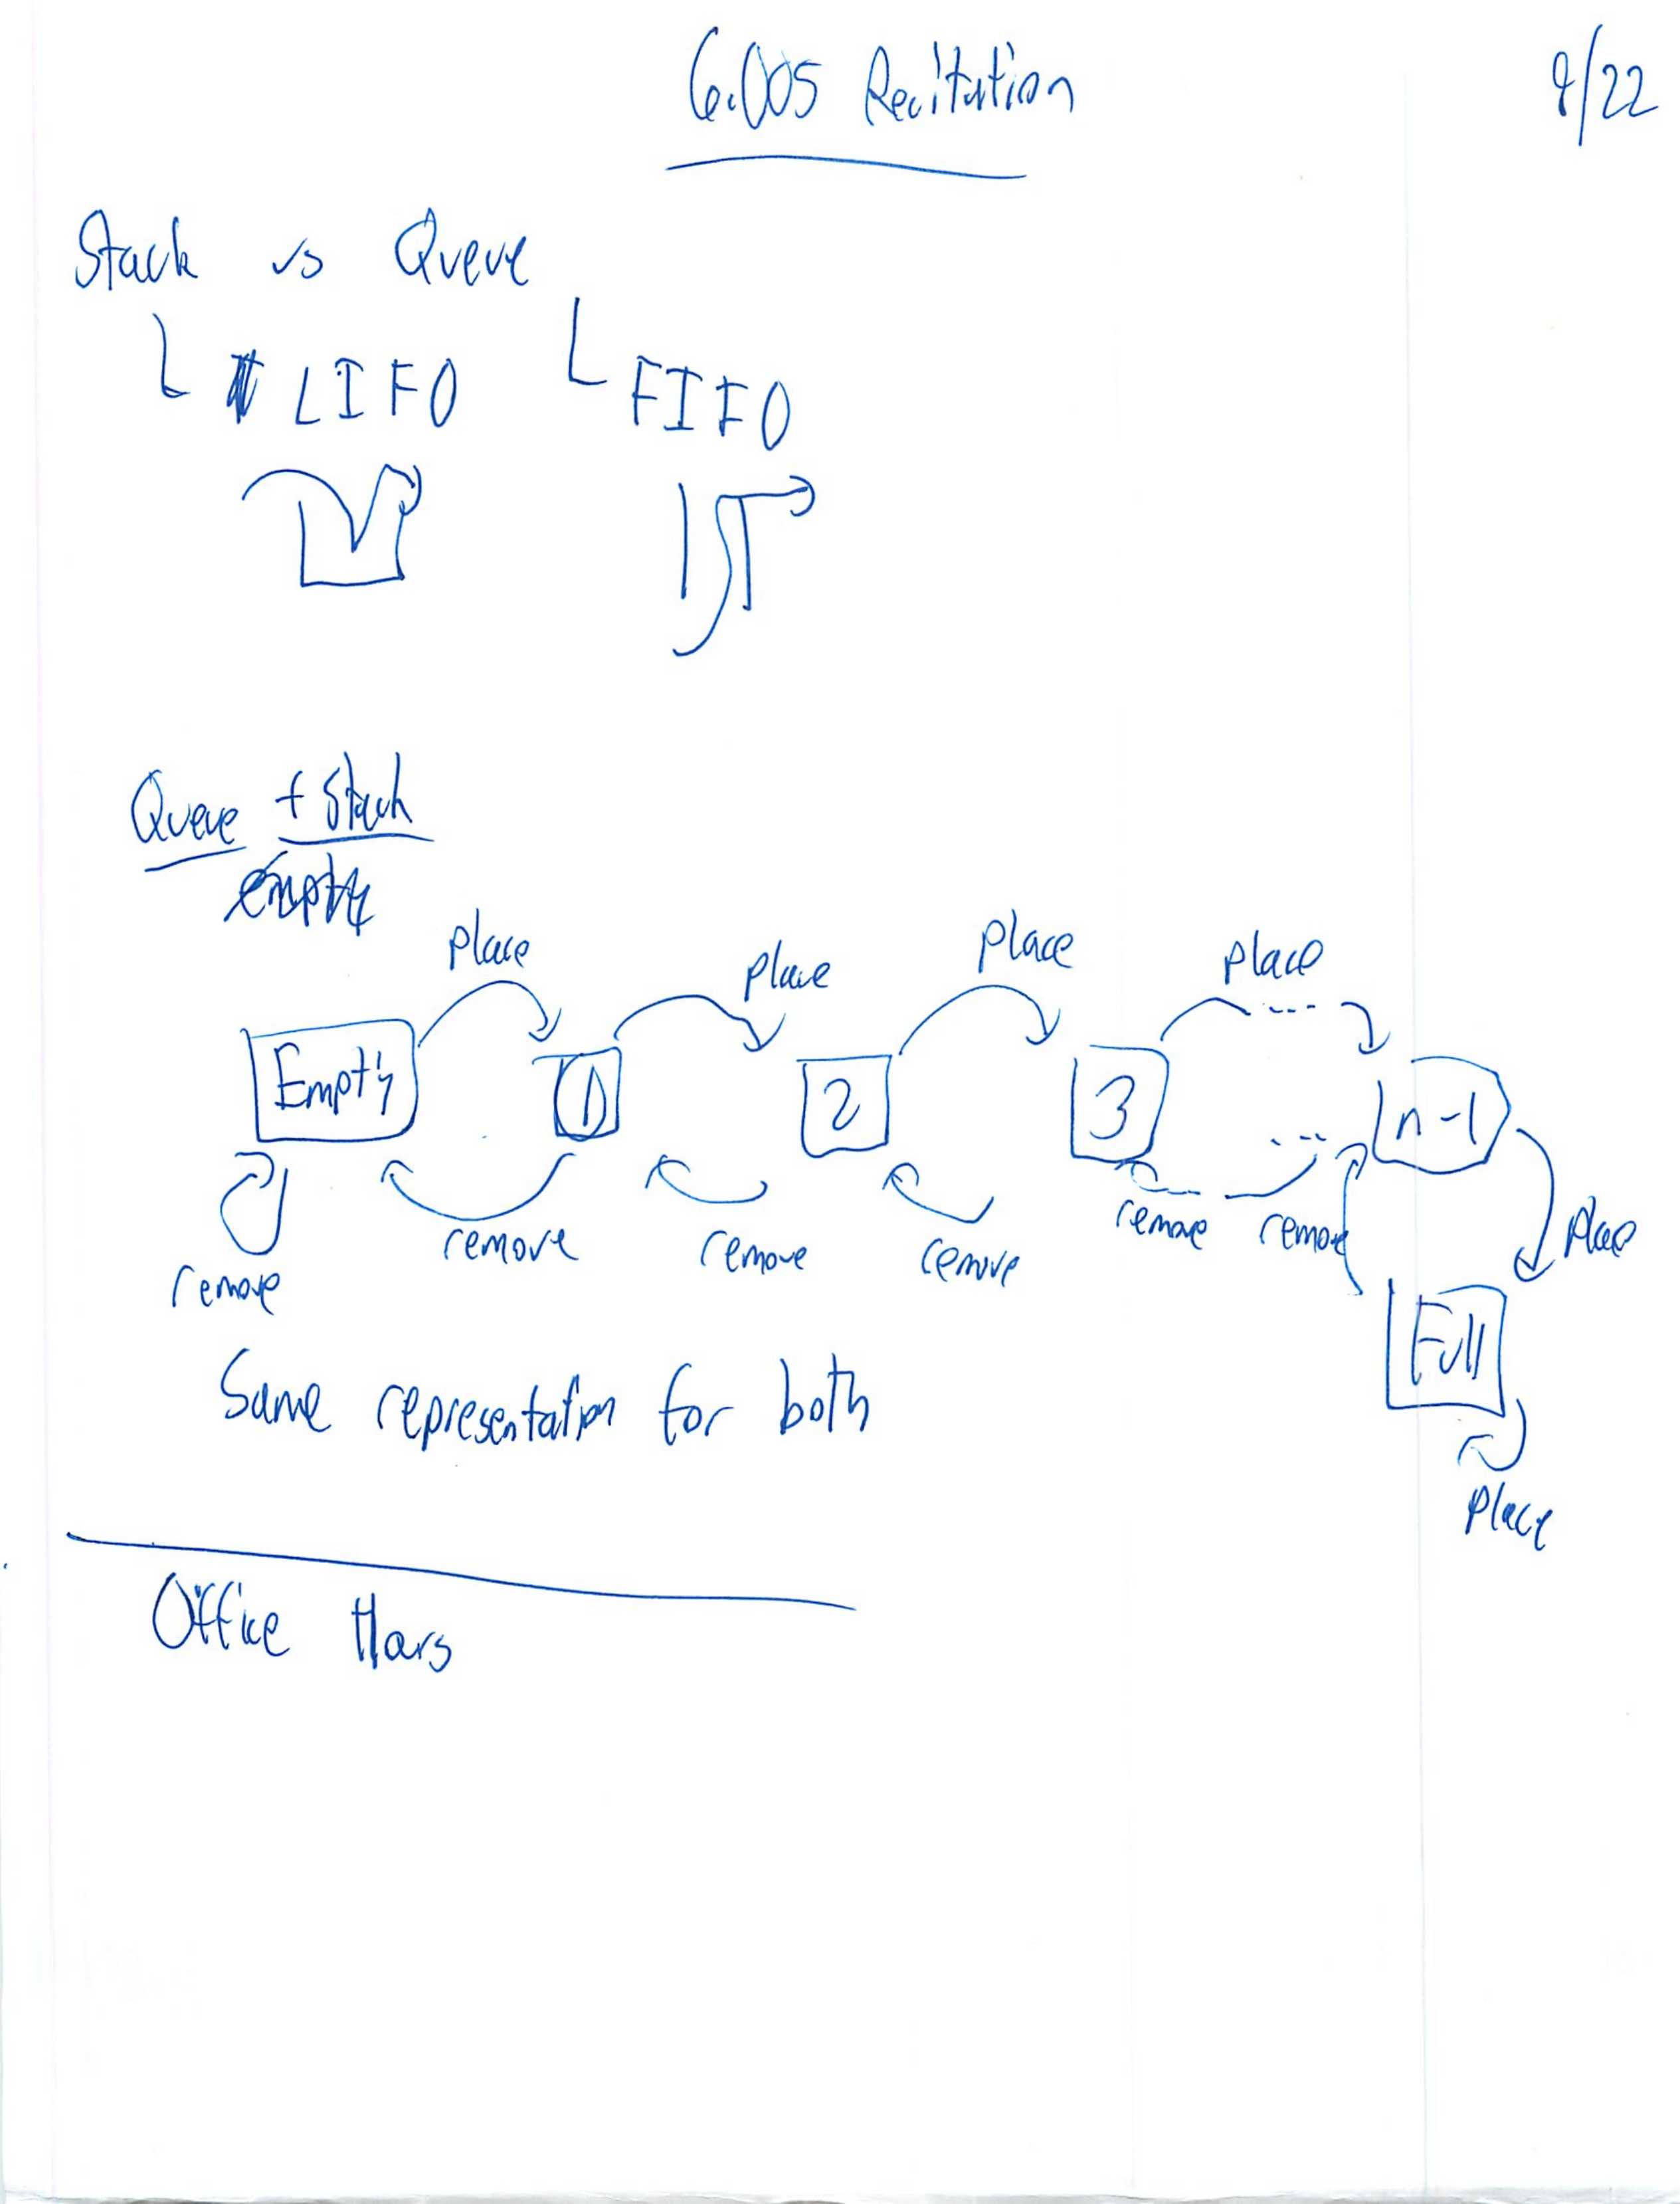 6.005 Recitation
9/22
Stack vs Queue
LIFO FIFO
Queue + Stack
empty
place place place place
Empty 1 2 3 ... n-1
remove remove remove remove remove remove place
Full
place
Same representation for both
Office Hours